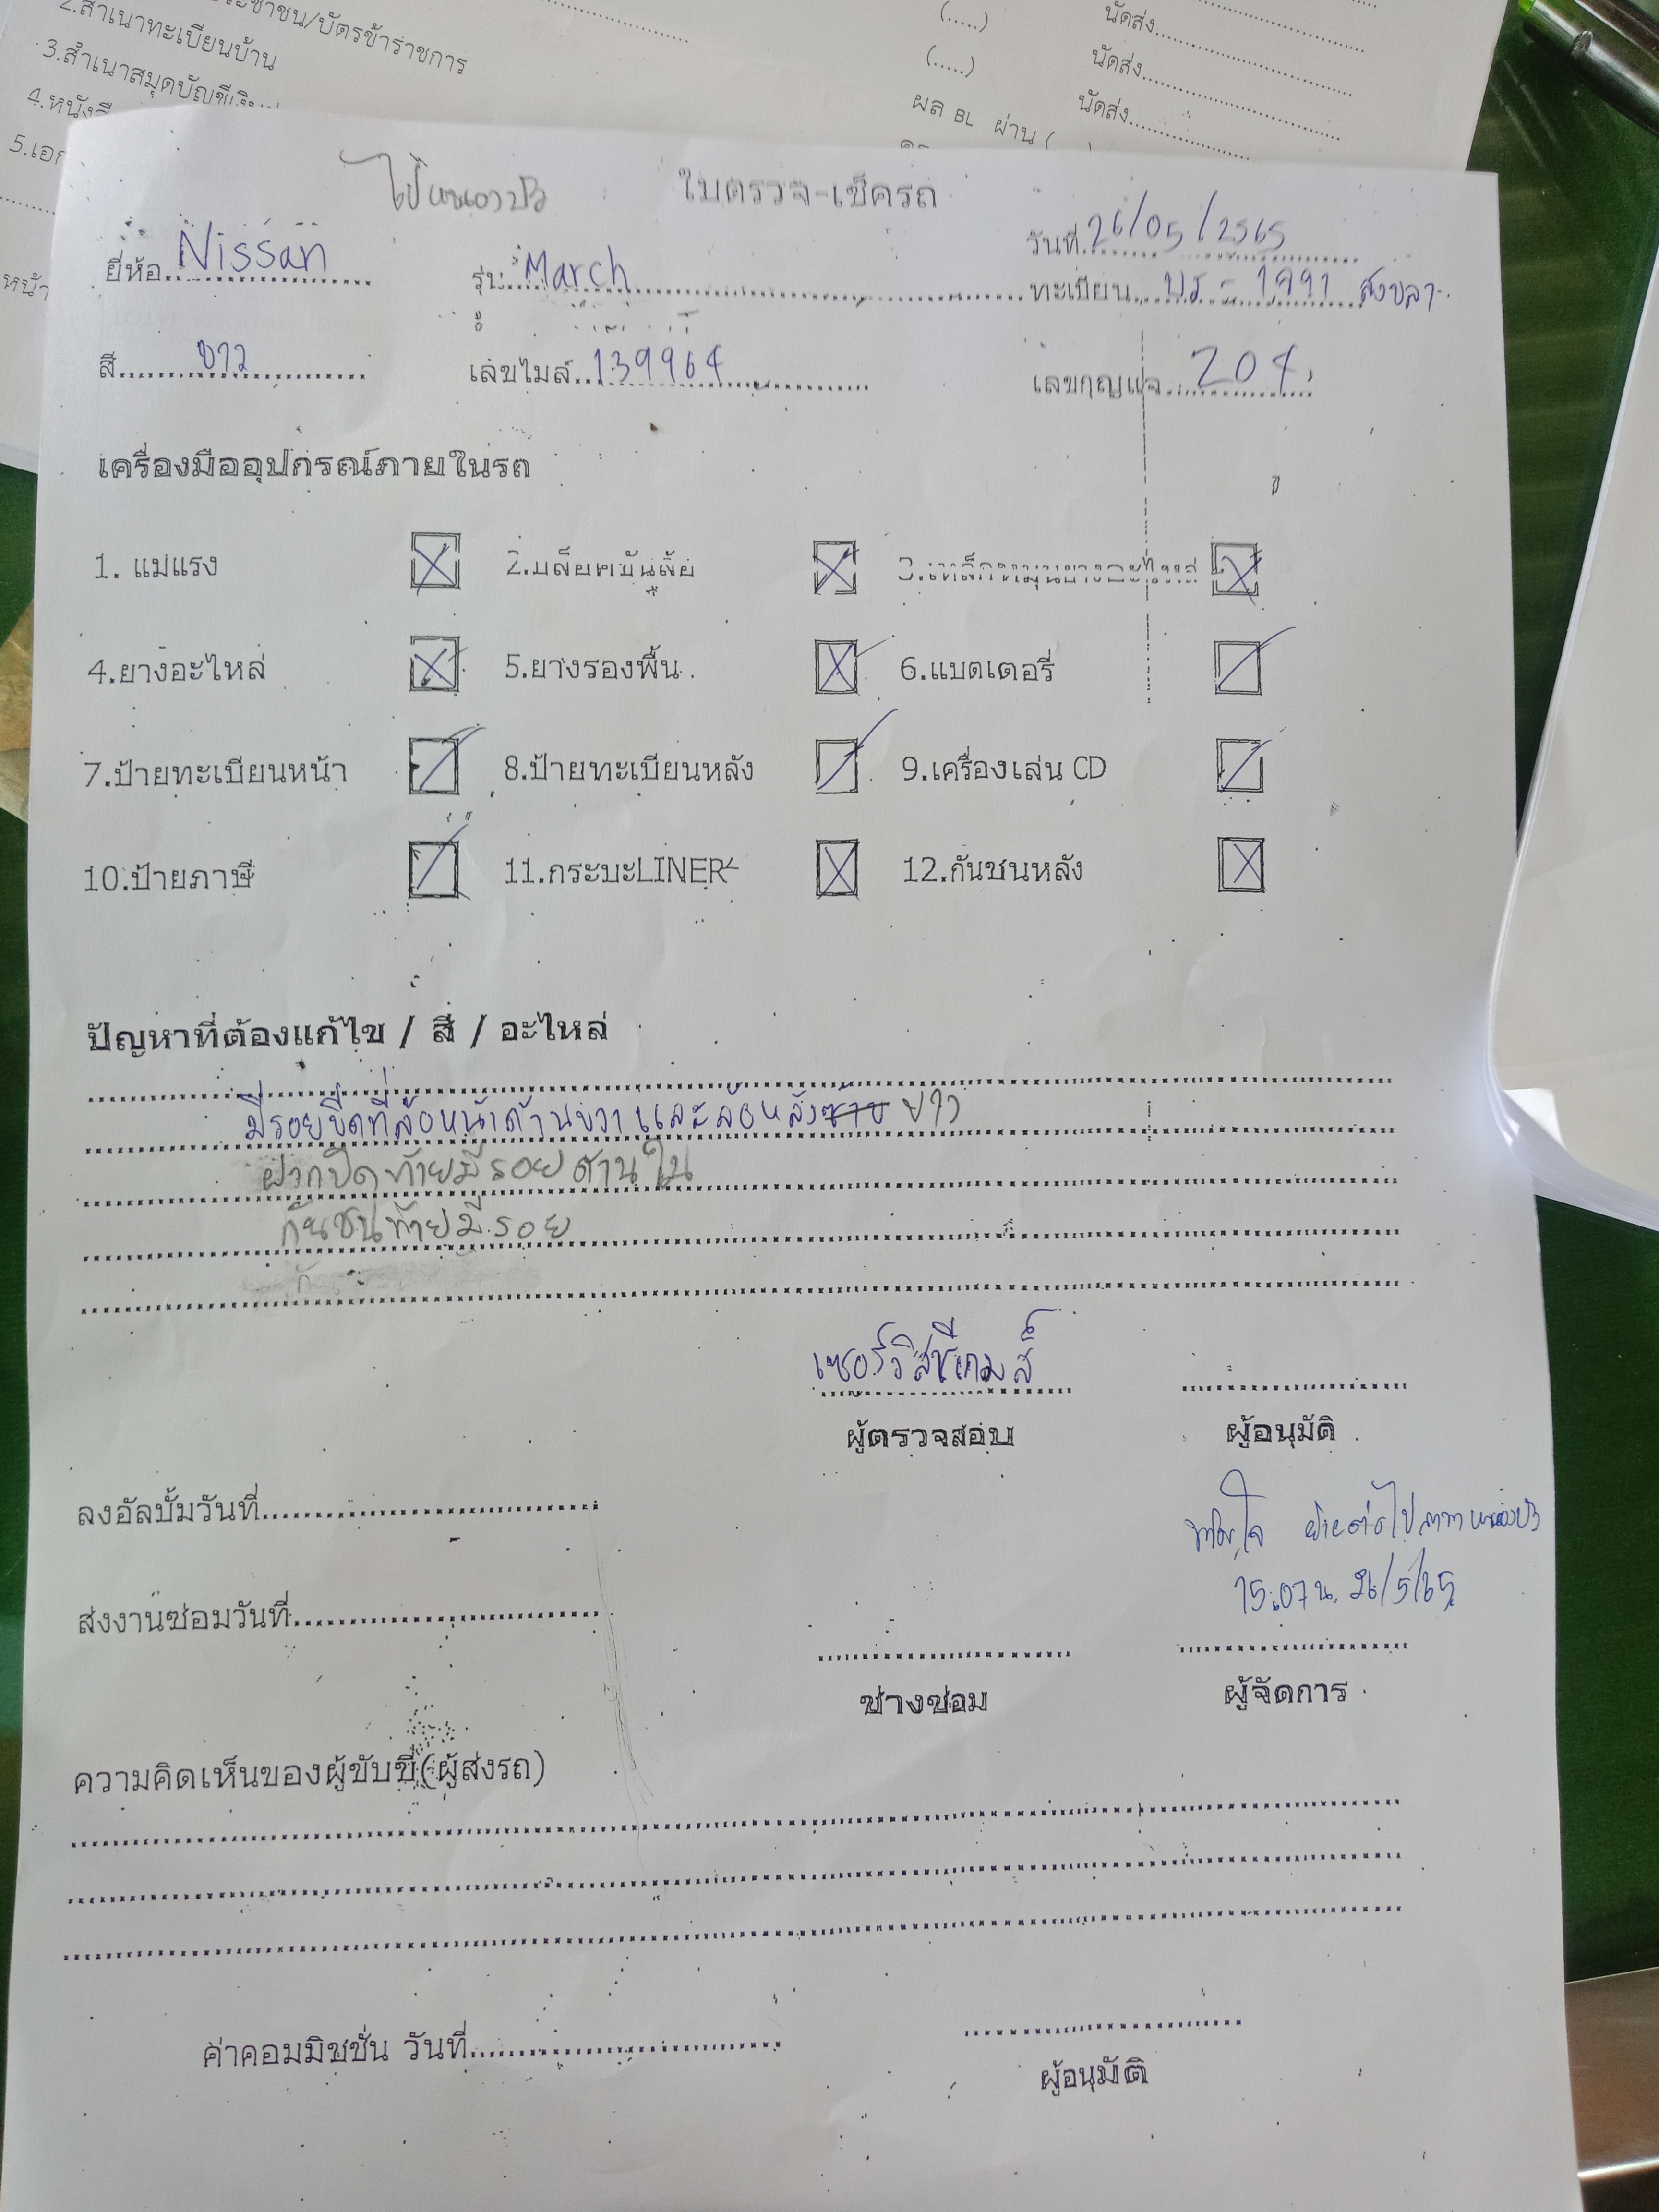 ประชาชน/บัตรข้าราชการ
2.สำเนาทะเบียนบ้าน
3.สำเนาสมุดบัญชี
4.หนังสือ
5.เอก
หน้า
(.....) นัดส่ง
(.....) นัดส่ง
ผล BL ผ่าน ( นัดส่ง
ไปหนองบัว ใบตรวจ-เช็ครถ
วันที่ 26/05/2565
ยี่ห้อ Nissan รุ่น March ทะเบียน 1991 สงขลา
สี ขาว เลขไมล์ 139964 เลขกุญแจ 204
เครื่องมืออุปกรณ์ภายในรถ
1. แม่แรง 2.บล็อคขันล้อ 3.เหล็กหมุนยางอะไหล่
4.ยางอะไหล่ 5.ยางรองพื้น 6.แบตเตอรี่
7.ป้ายทะเบียนหน้า 8.ป้ายทะเบียนหลัง 9.เครื่องเล่น CD
10.ป้ายภาษี 11.กระบะLINER 12.กันชนหลัง
ปัญหาที่ต้องแก้ไข / สี / อะไหล่
มีรอยขีดที่ล้อหน้าด้านขวา และล้อหลังซ้าย ขวา
ฝากปิดท้ายมีรอยด้านใน
กันชนท้ายมีรอย
เซอร์วิส
ผู้ตรวจสอบ ผู้อนุมัติ
ลงอัลบั้มวันที่
15.07 น. 26/5/65
ส่งงานซ่อมวันที่
ช่างซ่อม ผู้จัดการ
ความคิดเห็นของผู้ขับขี่(ผู้ส่งรถ)
ค่าคอมมิชชั่น วันที่
ผู้อนุมัติ